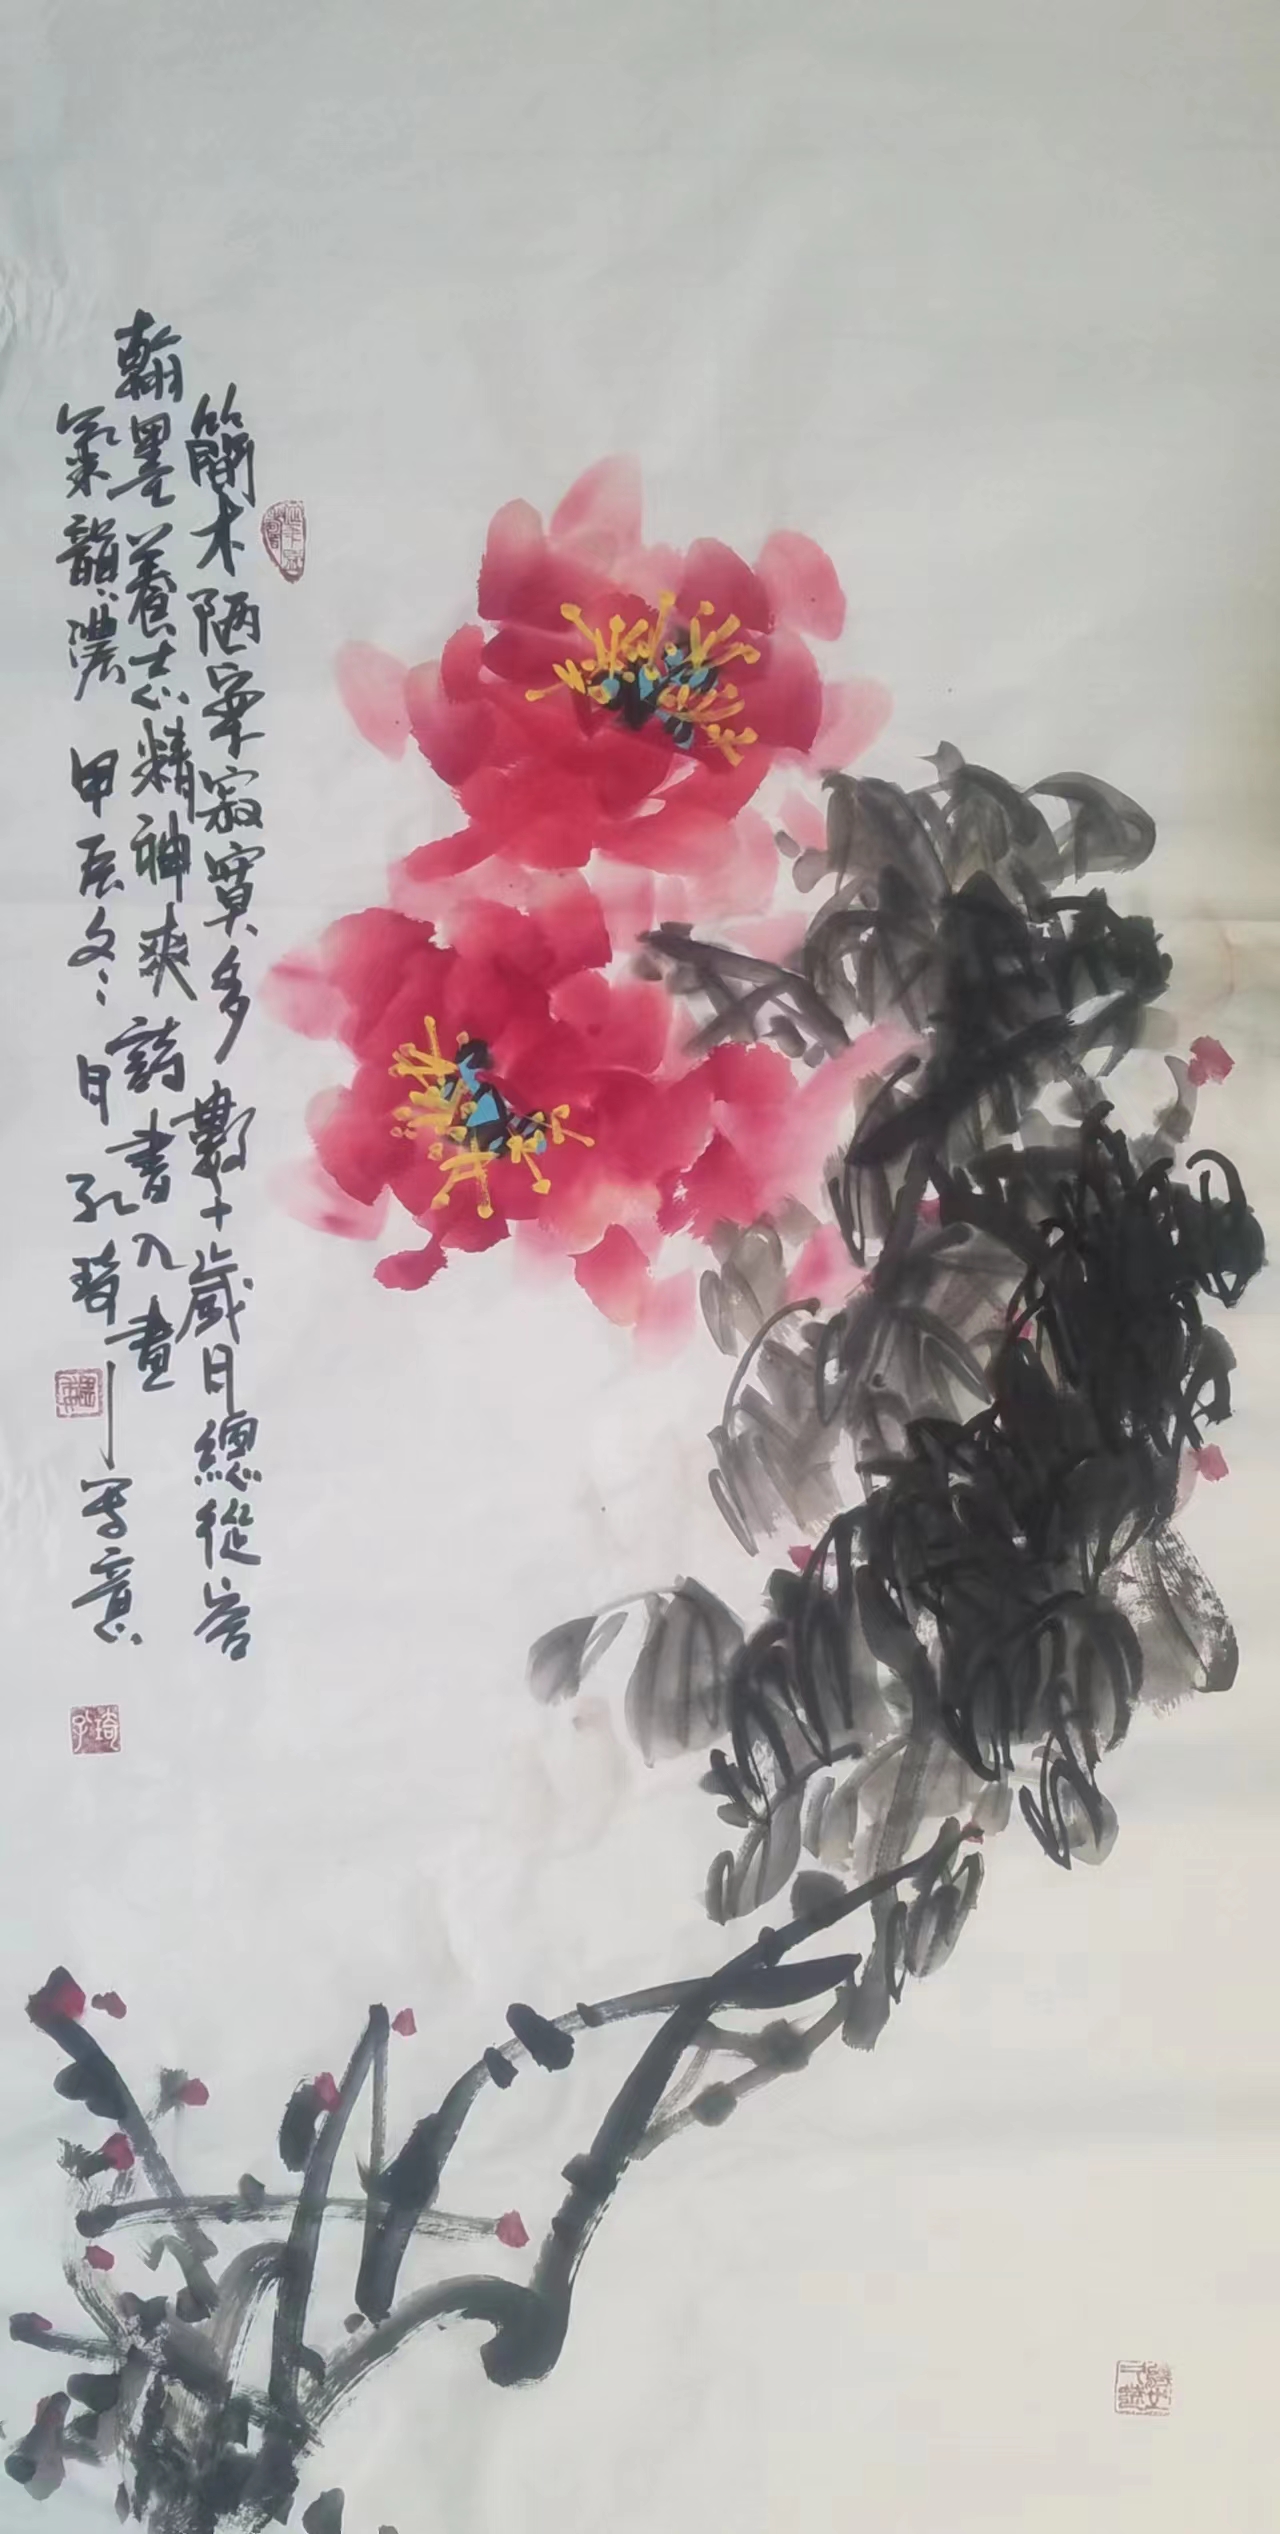 簡木陋室寂寞多數十歲月總從容
翰墨養志精神爽詩書入畫
氣韻濃 甲辰冬日孔琦寫意
孔琦